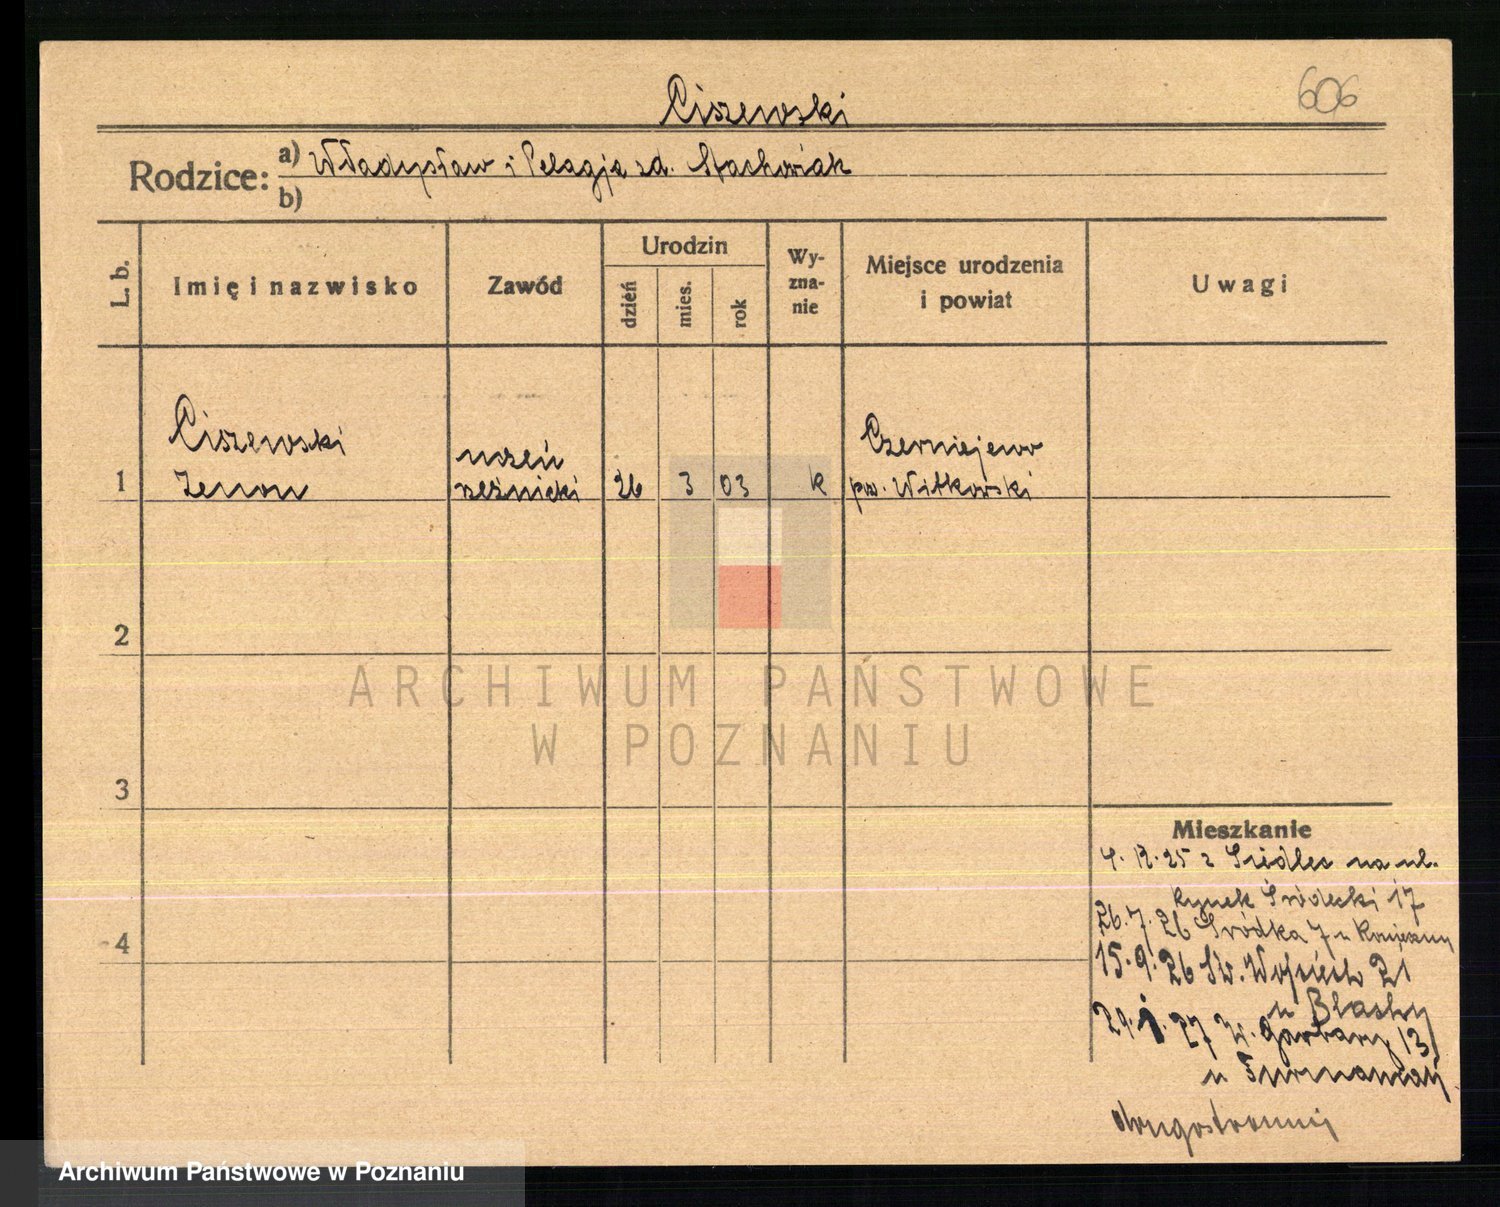 606
Ciszewski
Rodzice: a) Władysław i Pelagja zd. Stachowiak
b)
L. b.
Imię i nazwisko
Zawód
Urodzin
dzień
mies.
rok
Wy-
zna-
nie
Miejsce urodzenia
i powiat
Uwagi
1
Ciszewski
Zenon
uczeń
rzeźnicki
26
3
03
k
Czerniejewo
pow. Witkowski
2
3
4
Mieszkanie
4. 12. 25 z Siedlec na ul.
Rynek Śródecki 17
26. 7. 26 Śródka 7 u
15. 9. 26 Św. Wojciech 21
u
29. 1. 27 W. Garbary 13
u
drugostronnie
ARCHIWUM PAŃSTWOWE
W POZNANIU
Archiwum Państwowe w Poznaniu